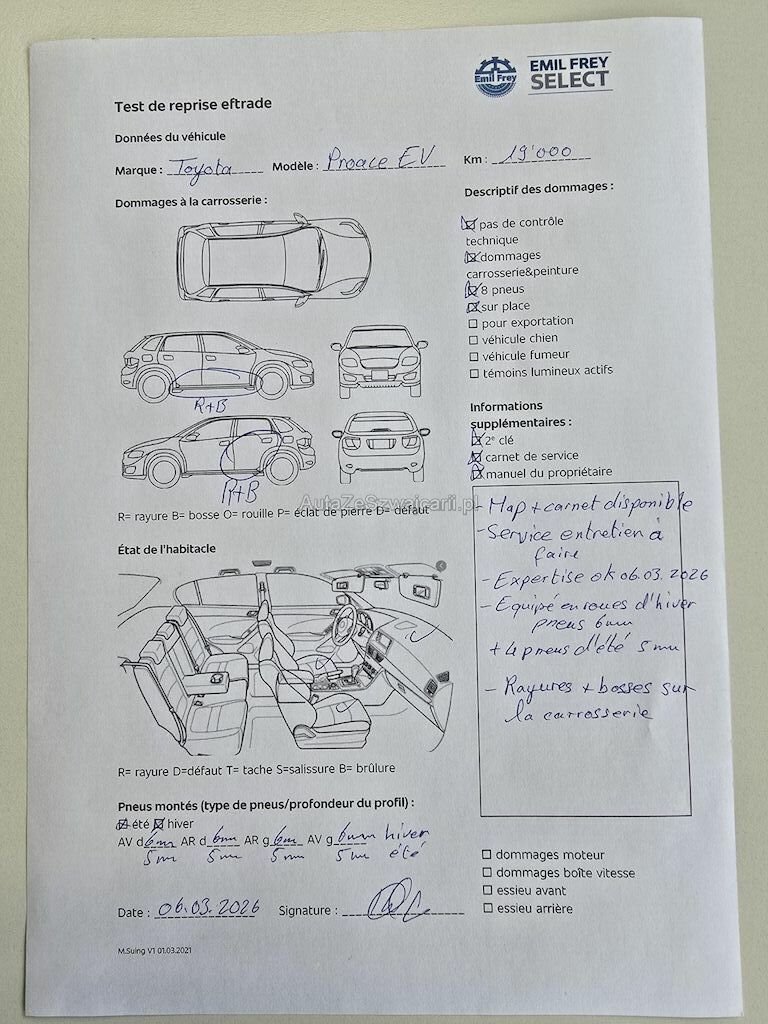 Emil Frey
EMIL FREY
SELECT
Test de reprise eftrade
Données du véhicule
Marque : Toyota Modèle : Proace EV Km : 19'000
Dommages à la carrosserie :
R+B
R+B
R= rayure B= bosse O= rouille P= éclat de pierre D= défaut
État de l'habitacle
R= rayure D=défaut T= tache S=salissure B= brûlure
Pneus montés (type de pneus/profondeur du profil) :
été hiver
AV d 6mm AR d 6mm AR g 6mm AV g 6mm hiver
5 mm 5 mm 5 mm 5 mm été
Date : 06.03.2026 Signature :
M.Suing V1 01.03.2021
Descriptif des dommages :
pas de contrôle
technique
dommages
carrosserie&peinture
8 pneus
sur place
pour exportation
véhicule chien
véhicule fumeur
témoins lumineux actifs
Informations
supplémentaires :
2e clé
carnet de service
manuel du propriétaire
- Map + carnet disponible
- Service entretien à
faire
- Expertise ok 06.03.2026
- Equipé en roues d'hiver
pneus 6mm
+ 4 pneus d'été 5 mm
- Rayures + bosses sur
la carrosserie
dommages moteur
dommages boîte vitesse
essieu avant
essieu arrière
AutaZeSzwajcarii.pl